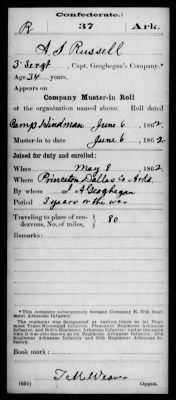 (Confederate.)
R 37 Ark.
A. S. Russell
3 Sergt, Capt. Geoghegan's Company.*
Age 34 years.
Appears on
Company Muster-in Roll
of the organization named above. Roll dated
Camp Hindman June 6, 1862.
Muster-in to date June 6, 1862
Joined for duty and enrolled:
When May 8, 1862
Where Princeton Dallas Co Arks.
By whom J. A. Geoghegan
Period 3 years or the war
Traveling to place of ren-
dezvous, No. of miles, 80
Remarks:
* This company subsequently became Company E, 37th Regi-
ment Arkansas Infantry.
Book mark:
T. M. Weaver
Copyist.